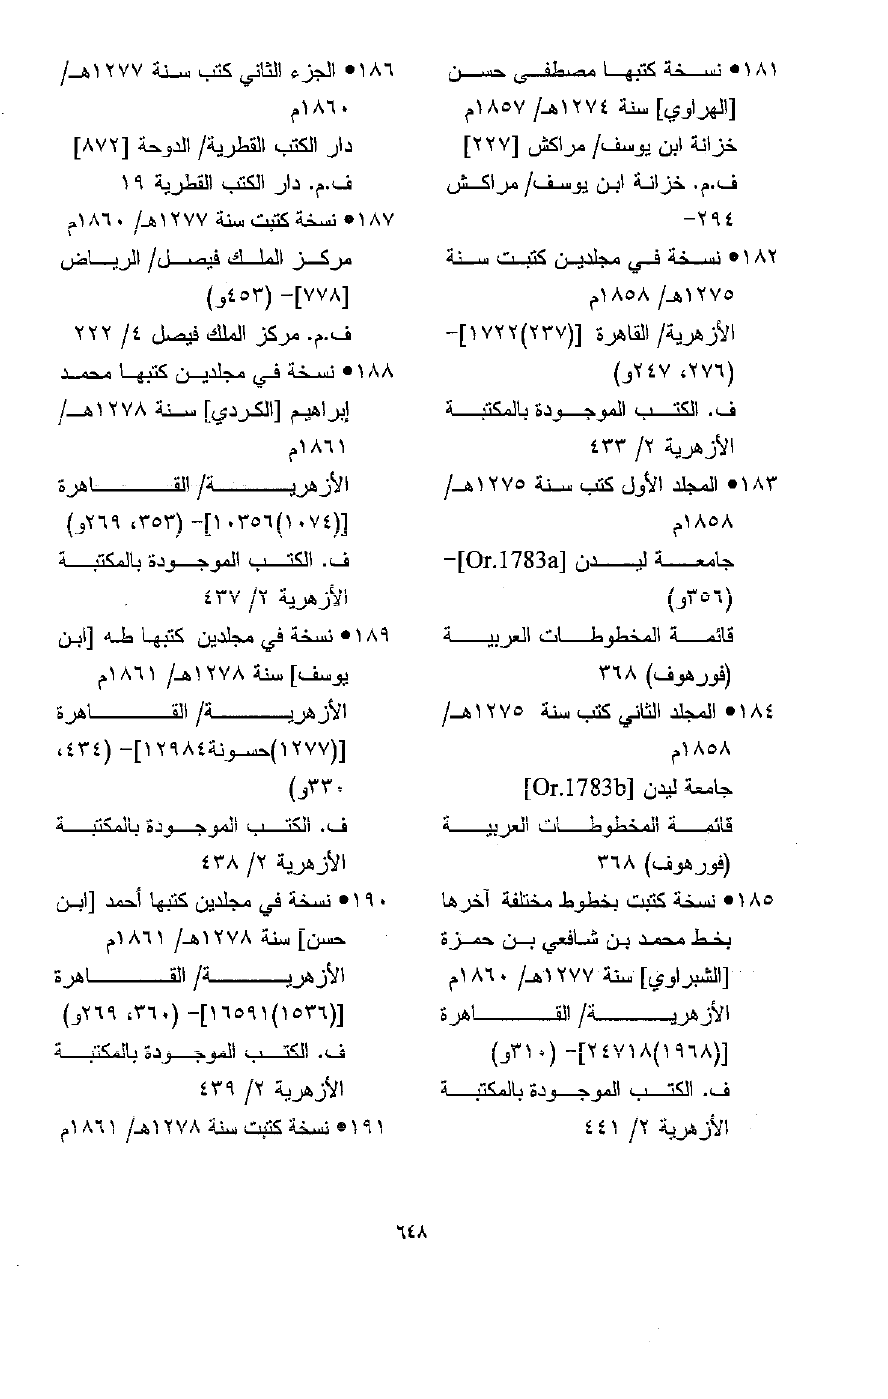 ١٨١• نسخة كتبها مصطفى حسن
[الهراوي] سنة ١٢٧٤هـ/ ١٨٥٧م
خزانة ابن يوسف/ مراكش [٢٢٧]
ف.م. خزانة ابن يوسف/ مراكش
٢٩٤-
١٨٢• نسخة في مجلدين كتبت سنة
١٢٧٥هـ/ ١٨٥٨م
الأزهرية/ القاهرة [(٢٣٧)١٧٢٢]-
(٢٧٦، ٢٤٧و)
ف. الكتب الموجودة بالمكتبة
الأزهرية ٢/ ٤٣٣
١٨٣• المجلد الأول كتب سنة ١٢٧٥هـ/
١٨٥٨م
جامعة ليدن [Or.1783a]-
(٣٥٦و)
قائمة المخطوطات العربية
(فورهوف) ٣٦٨
١٨٤• المجلد الثاني كتب سنة ١٢٧٥هـ/
١٨٥٨م
جامعة ليدن [Or.1783b]
قائمة المخطوطات العربية
(فورهوف) ٣٦٨
١٨٥• نسخة كتبت بخطوط مختلفة آخرها
بخط محمد بن شافعي بن حمزة
[الشبراوي] سنة ١٢٧٧هـ/ ١٨٦٠م
الأزهرية/ القاهرة
[(١٩٦٨)٢٤٧١٨]- (٣١٠و)
ف. الكتب الموجودة بالمكتبة
الأزهرية ٢/ ٤٤١
١٨٦• الجزء الثاني كتب سنة ١٢٧٧هـ/
١٨٦٠م
دار الكتب القطرية/ الدوحة [٨٧٢]
ف.م. دار الكتب القطرية ١٩
١٨٧• نسخة كتبت سنة ١٢٧٧هـ/ ١٨٦٠م
مركز الملك فيصل/ الرياض
[٧٧٨]- (٤٥٣و)
ف.م. مركز الملك فيصل ٤/ ٢٢٢
١٨٨• نسخة في مجلدين كتبها محمد
إبراهيم [الكردي] سنة ١٢٧٨هـ/
١٨٦١م
الأزهرية/ القاهرة
[(١٠٧٤)١٠٣٥٦]- (٣٥٣، ٢٦٩و)
ف. الكتب الموجودة بالمكتبة
الأزهرية ٢/ ٤٣٧
١٨٩• نسخة في مجلدين كتبها طه [ابن
يوسف] سنة ١٢٧٨هـ/ ١٨٦١م
الأزهرية/ القاهرة
[(١٢٧٧)حسونة١٢٩٨٤]- (٤٣٤،
٣٣٠و)
ف. الكتب الموجودة بالمكتبة
الأزهرية ٢/ ٤٣٨
١٩٠• نسخة في مجلدين كتبها أحمد [ابن
حسن] سنة ١٢٧٨هـ/ ١٨٦١م
الأزهرية/ القاهرة
[(١٥٣٦)١٦٥٩١]- (٣٦٠، ٢٦٩و)
ف. الكتب الموجودة بالمكتبة
الأزهرية ٢/ ٤٣٩
١٩١• نسخة كتبت سنة ١٢٧٨هـ/ ١٨٦١م
٦٤٨